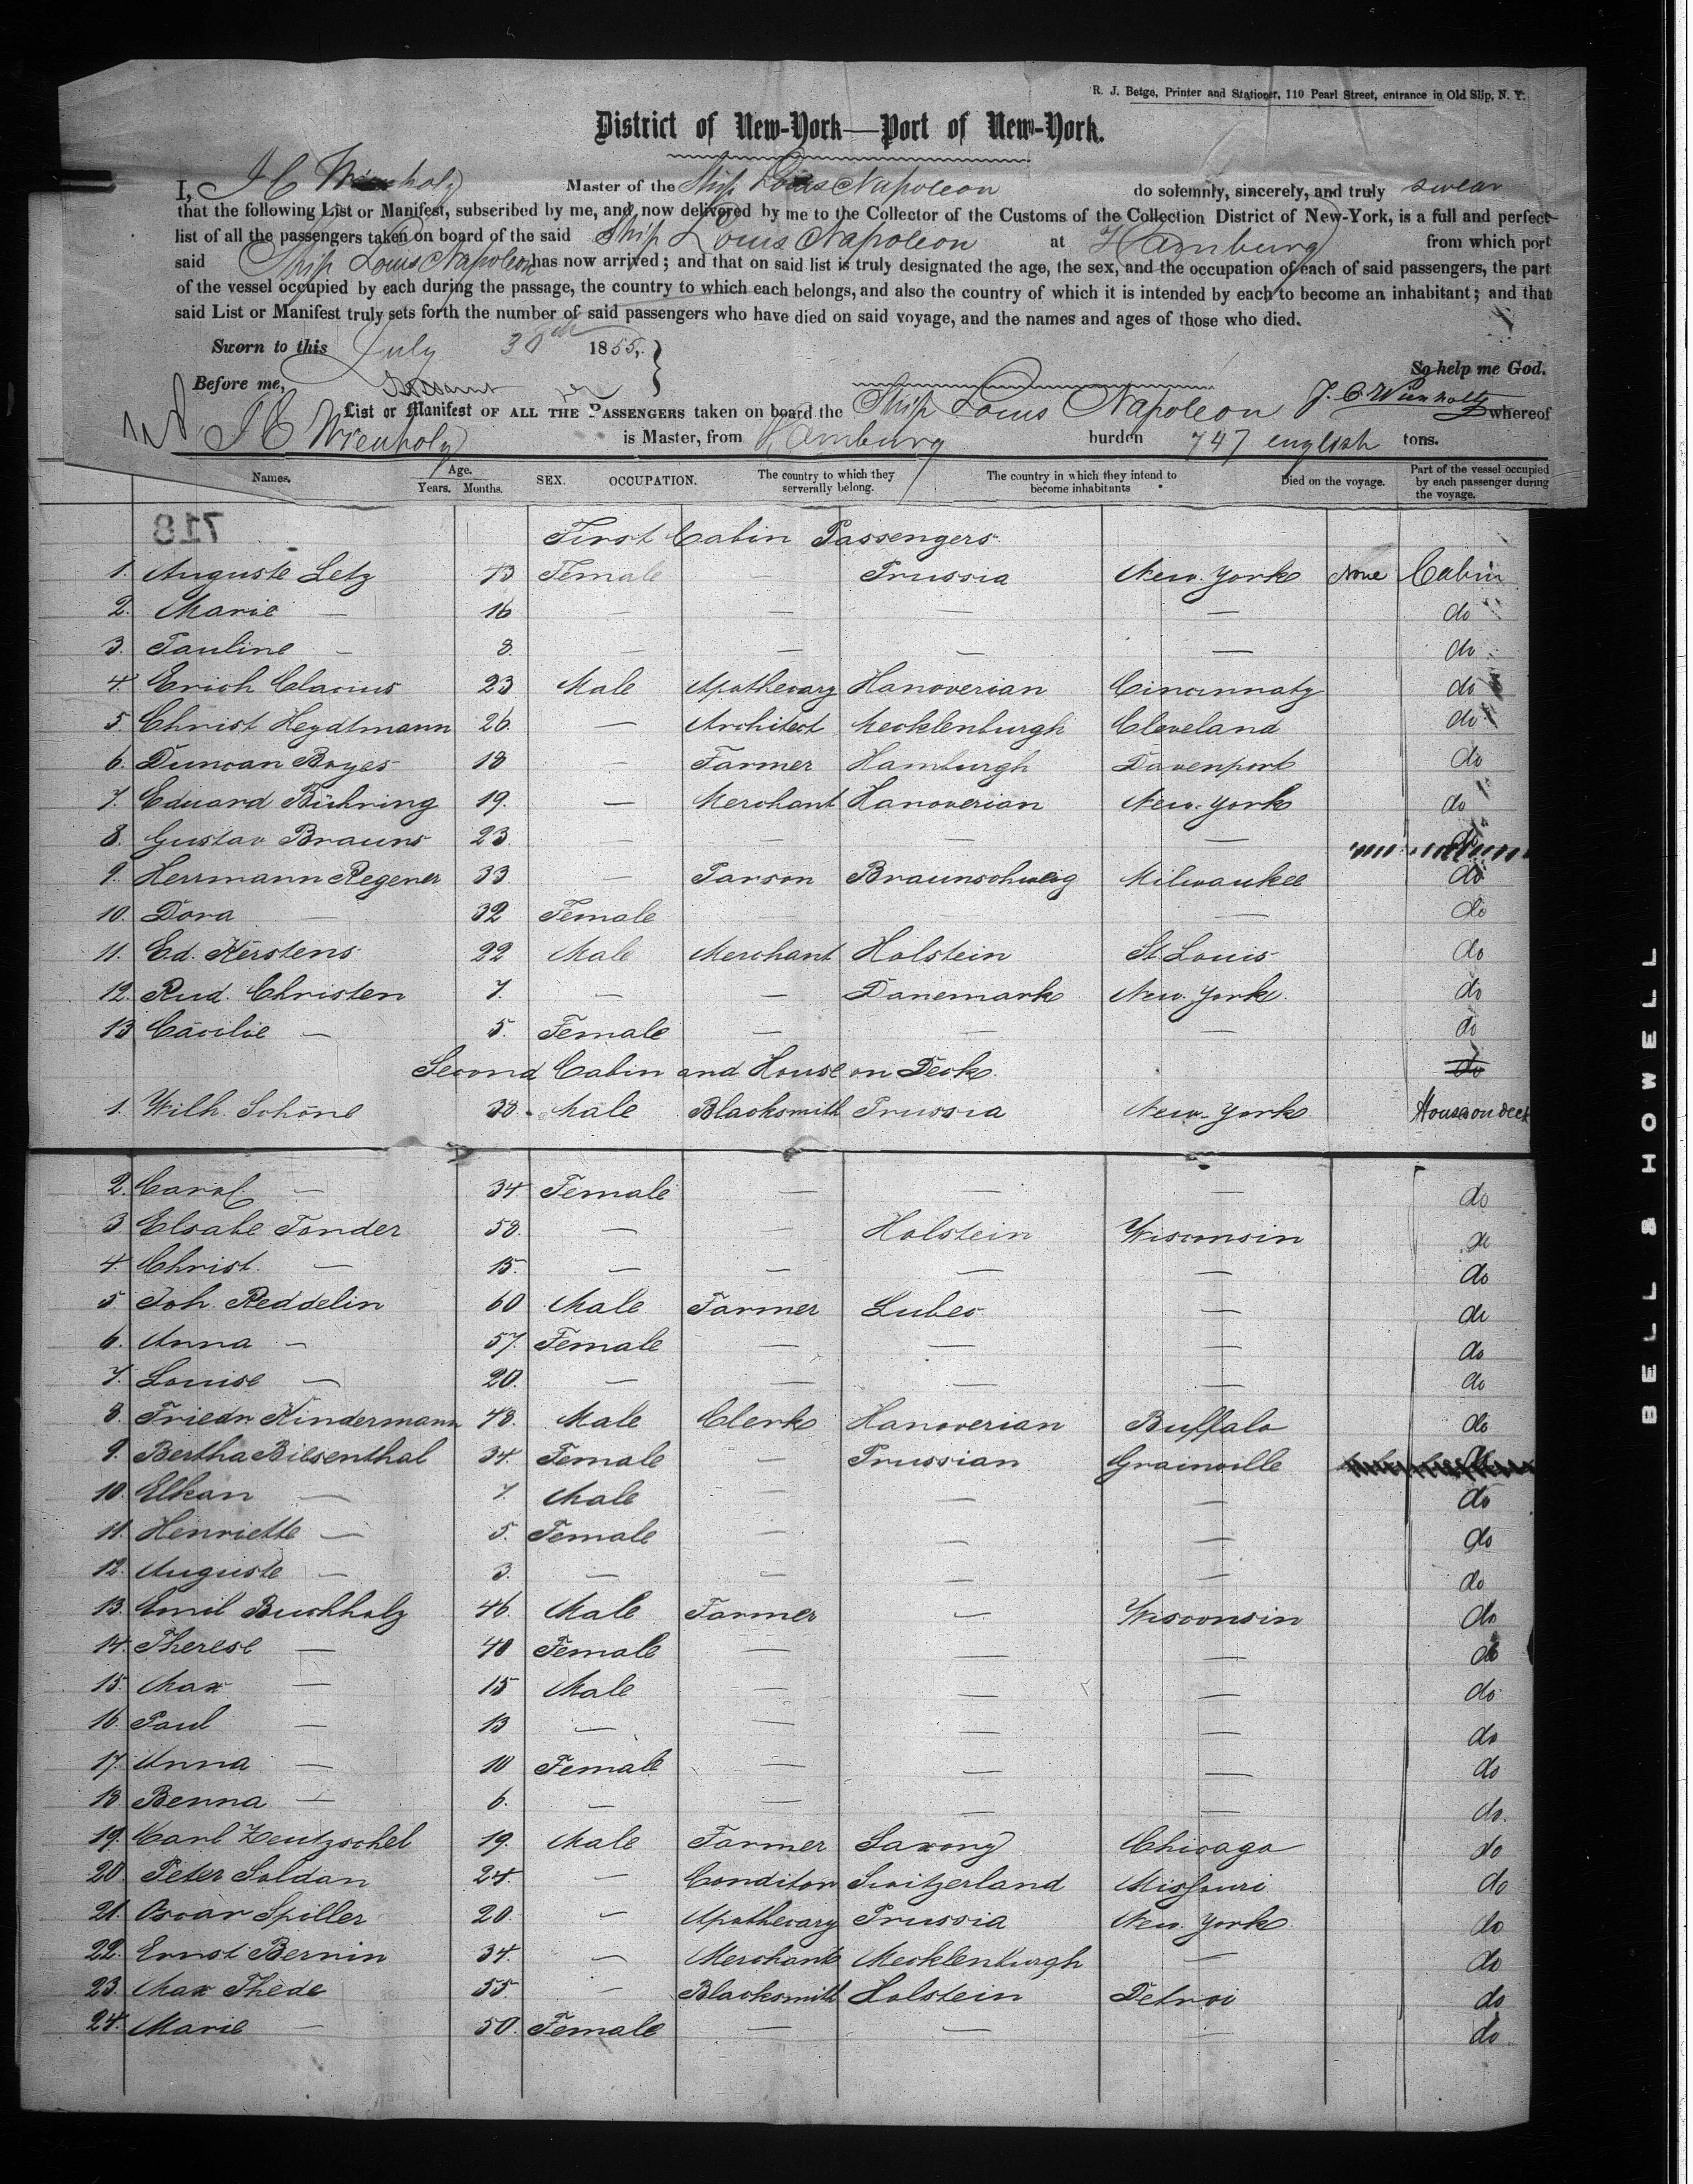 R. J. Betge, Printer and Stationer, 110 Pearl Street, entrance in Old Slip, N. Y.
District of New-York—Port of New-York.
I, J C Wienholz Master of the Ship Louis Napoleon do solemnly, sincerely, and truly swear
that the following List or Manifest, subscribed by me, and now delivered by me to the Collector of the Customs of the Collection District of New-York, is a full and perfect
list of all the passengers taken on board of the said Ship Louis Napoleon at Hamburg from which port
said Ship Louis Napoleon has now arrived; and that on said list is truly designated the age, the sex, and the occupation of each of said passengers, the part
of the vessel occupied by each during the passage, the country to which each belongs, and also the country of which it is intended by each to become an inhabitant; and that
said List or Manifest truly sets forth the number of said passengers who have died on said voyage, and the names and ages of those who died.
Sworn to this July 30th 1855,
So help me God.
Before me,
J. C. Wienholtz
List or Manifest OF ALL THE PASSENGERS taken on board the Ship Louis Napoleon whereof
J C Wienholz is Master, from Hamburg burden 747 english tons.
Names. Age. Years. Months. SEX. OCCUPATION. The country to which they serverally belong. The country in which they intend to become inhabitants Died on the voyage. Part of the vessel occupied by each passenger during the voyage.
718
First Cabin Passengers.
1. Auguste Letz 43 Female — Prussia New-York None Cabin
2. Marie — 16 — — — — do
3. Pauline — 8. — — — — do
4. Erich Clacius 23 Male Apothecary Hanoverian Cincinnaty do
5. Christ Heydtmann 26. — Architect Mecklenburgh Cleveland do
6. Duncan Boyes 18 — Farmer Hamburgh Davenport do
7. Eduard Bühring 19. — Merchant Hanoverian New-York do
8. Gustav Brauns 23. — — — — do
9. Herrmann Regener 33 — Parson Braunschweig Milwaukee do
10. Dora — 32 Female — — — do
11. Ed. Kerstens 22 Male Merchant Holstein St. Louis do
12. Rud. Christen 7. — — Danemark New-York. do
13 Cäcilie — 5. Female — — — do
Second Cabin and House on Deck. do
1. Wilh. Schöne 38. Male Blacksmith Prussia New-York House on deck
2. Carol. — 34 Female — — — do
3 Elsabe Tonder 58. — — Holstein Wisconsin do
4. Christ. — 15. — — — — do
5 Joh. Reddelin 60 Male Farmer Lubec — do
6. Anna — 57. Female — — — do
7. Louise — 20. — — — — do
8. Friedr Kindermann 48. Male Clerk Hanoverian Buffalo do
9. Bertha Biesenthal 34. Female — Prussian Grainville do
10. Elkan — 7. Male — — — do
11. Henriette — 5. Female — — — do
12. Auguste — 3. — — — — do
13. Emil Buchholz 46. Male Farmer — Wisconsin do
14. Therese — 40 Female — — — do
15. Max — 15 Male — — — do
16. Paul — 13 — — — — do
17. Anna — 10 Female — — — do
18. Benna — 6. — — — — do.
19. Carl Zeutzschel 19. Male Farmer Saxony Chicago do
20. Peter Soldan 24. — Conditor Switzerland Missouri do
21. Oscar Spiller 20. — Apothecary Prussia New-York. do
22. Ernst Bernin 34. — Merchant Mecklenburgh — do
23. Max Thede 55. — Blacksmith Holstein Detroi do
24. Marie — 50. Female — — — do
BELL & HOWELL